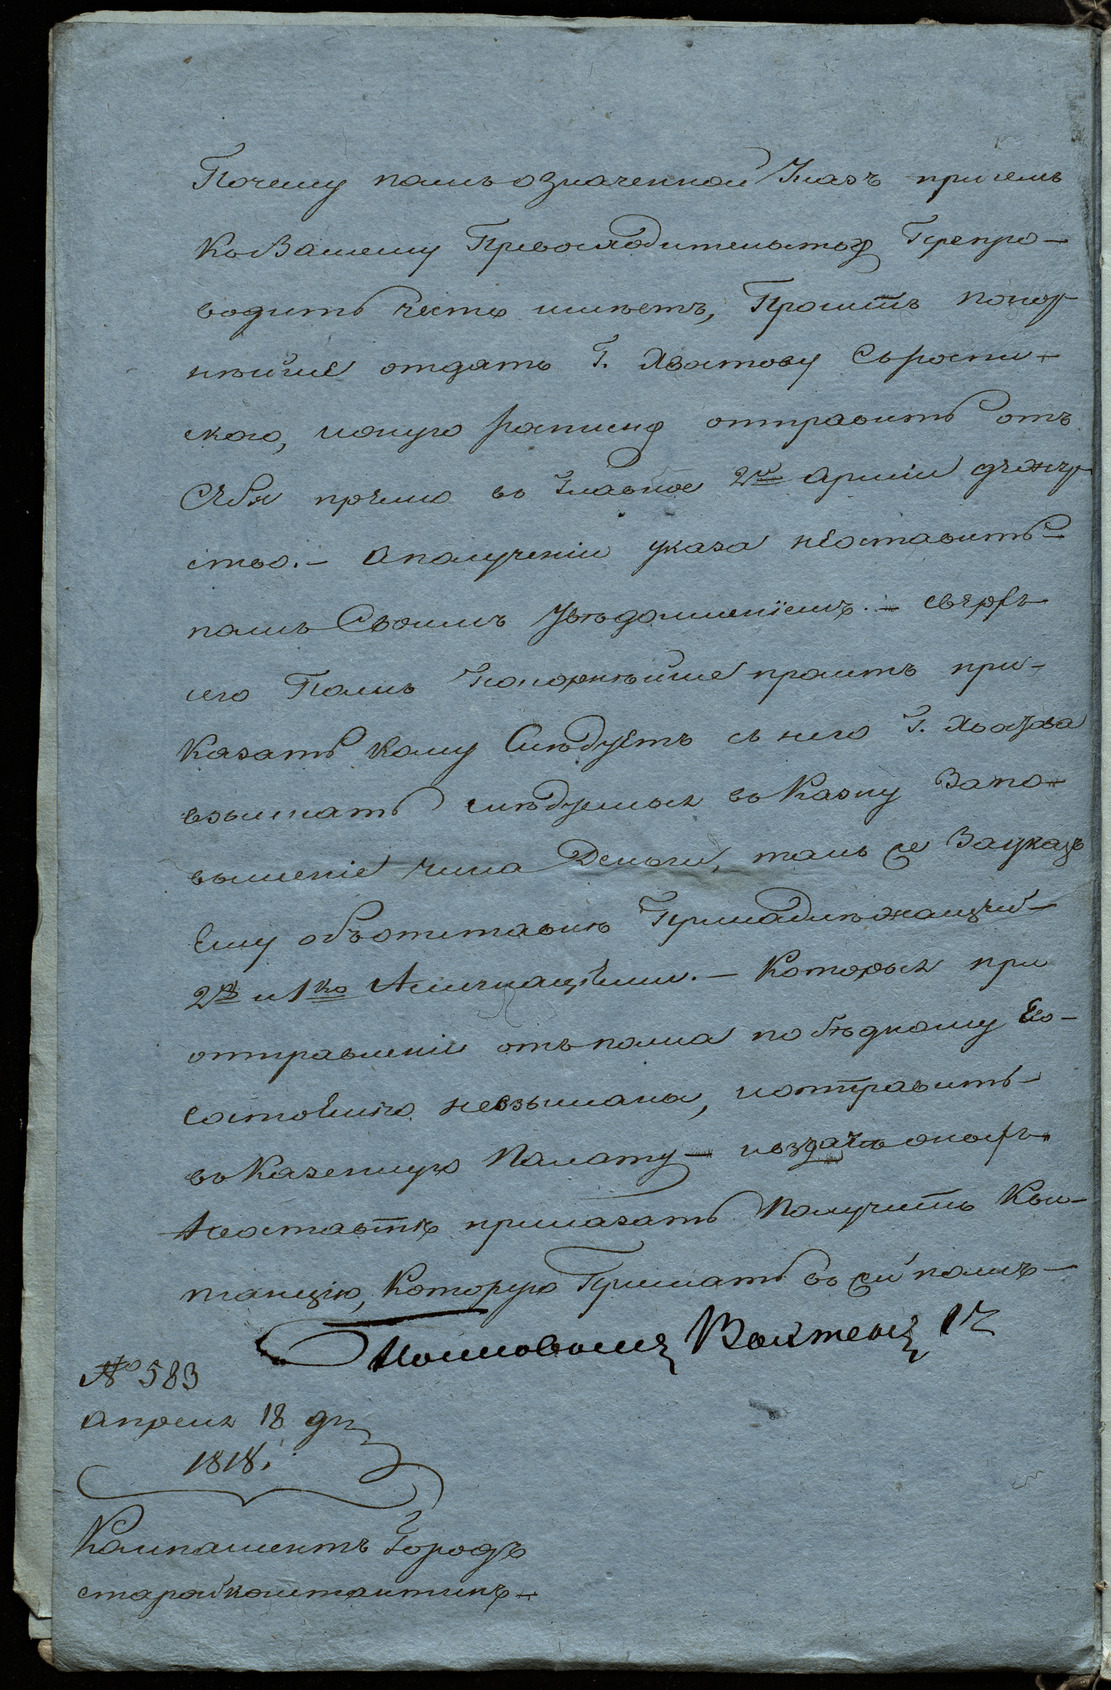 Почему полкъ означенной Указъ присемъ
къ Вашему Превосходительству Препро-
водить честь имѣетъ, Проситъ покор
нѣйше отдать Г. Хвостову Съроспи-
скою, и оную росписку отправить отъ
Себя прямо въ Главное 2й арміи дѣжур
ство.- Ополученіи указа неоставить
полкъ Своимъ Увѣдомленіемъ.- сверхъ
сего Полкъ Покорнѣйше проситъ при-
казать кому Слѣдуетъ съ него Г. Хвостова
взыскать слѣдуемыя въ Казну Запо-
вышеніе чина Деньги, такъ же За указъ
Ему объ отставкѣ Принадлежащій
2 и 1 Ассигнаціями.- Которыя при
отправленіи отъ полка по бѣдному Ево
состоянію невзысканы, и отправить
въ Казенную Палату - оныхъ
приказать Получить Кви-
танцію, Которую Прислать въ сей полкъ-
Полковникъ
№ 583
апреля 18 дня
1818.
Городъ